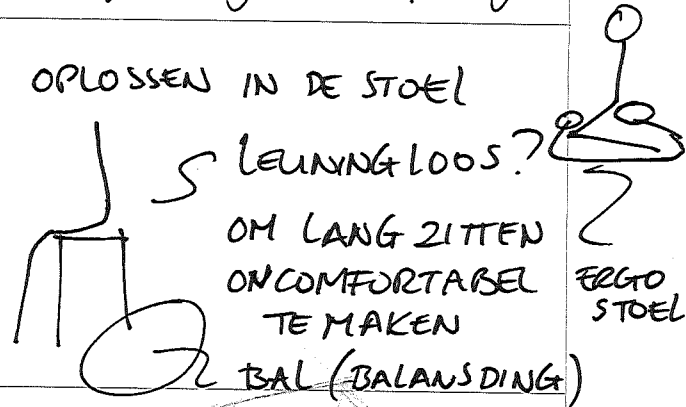 OPLOSSEN IN DE STOEL
LEUNINGLOOS?
OM LANG ZITTEN
ONCOMFORTABEL
TE MAKEN
BAL (BALANSDING)
ERGO
STOEL